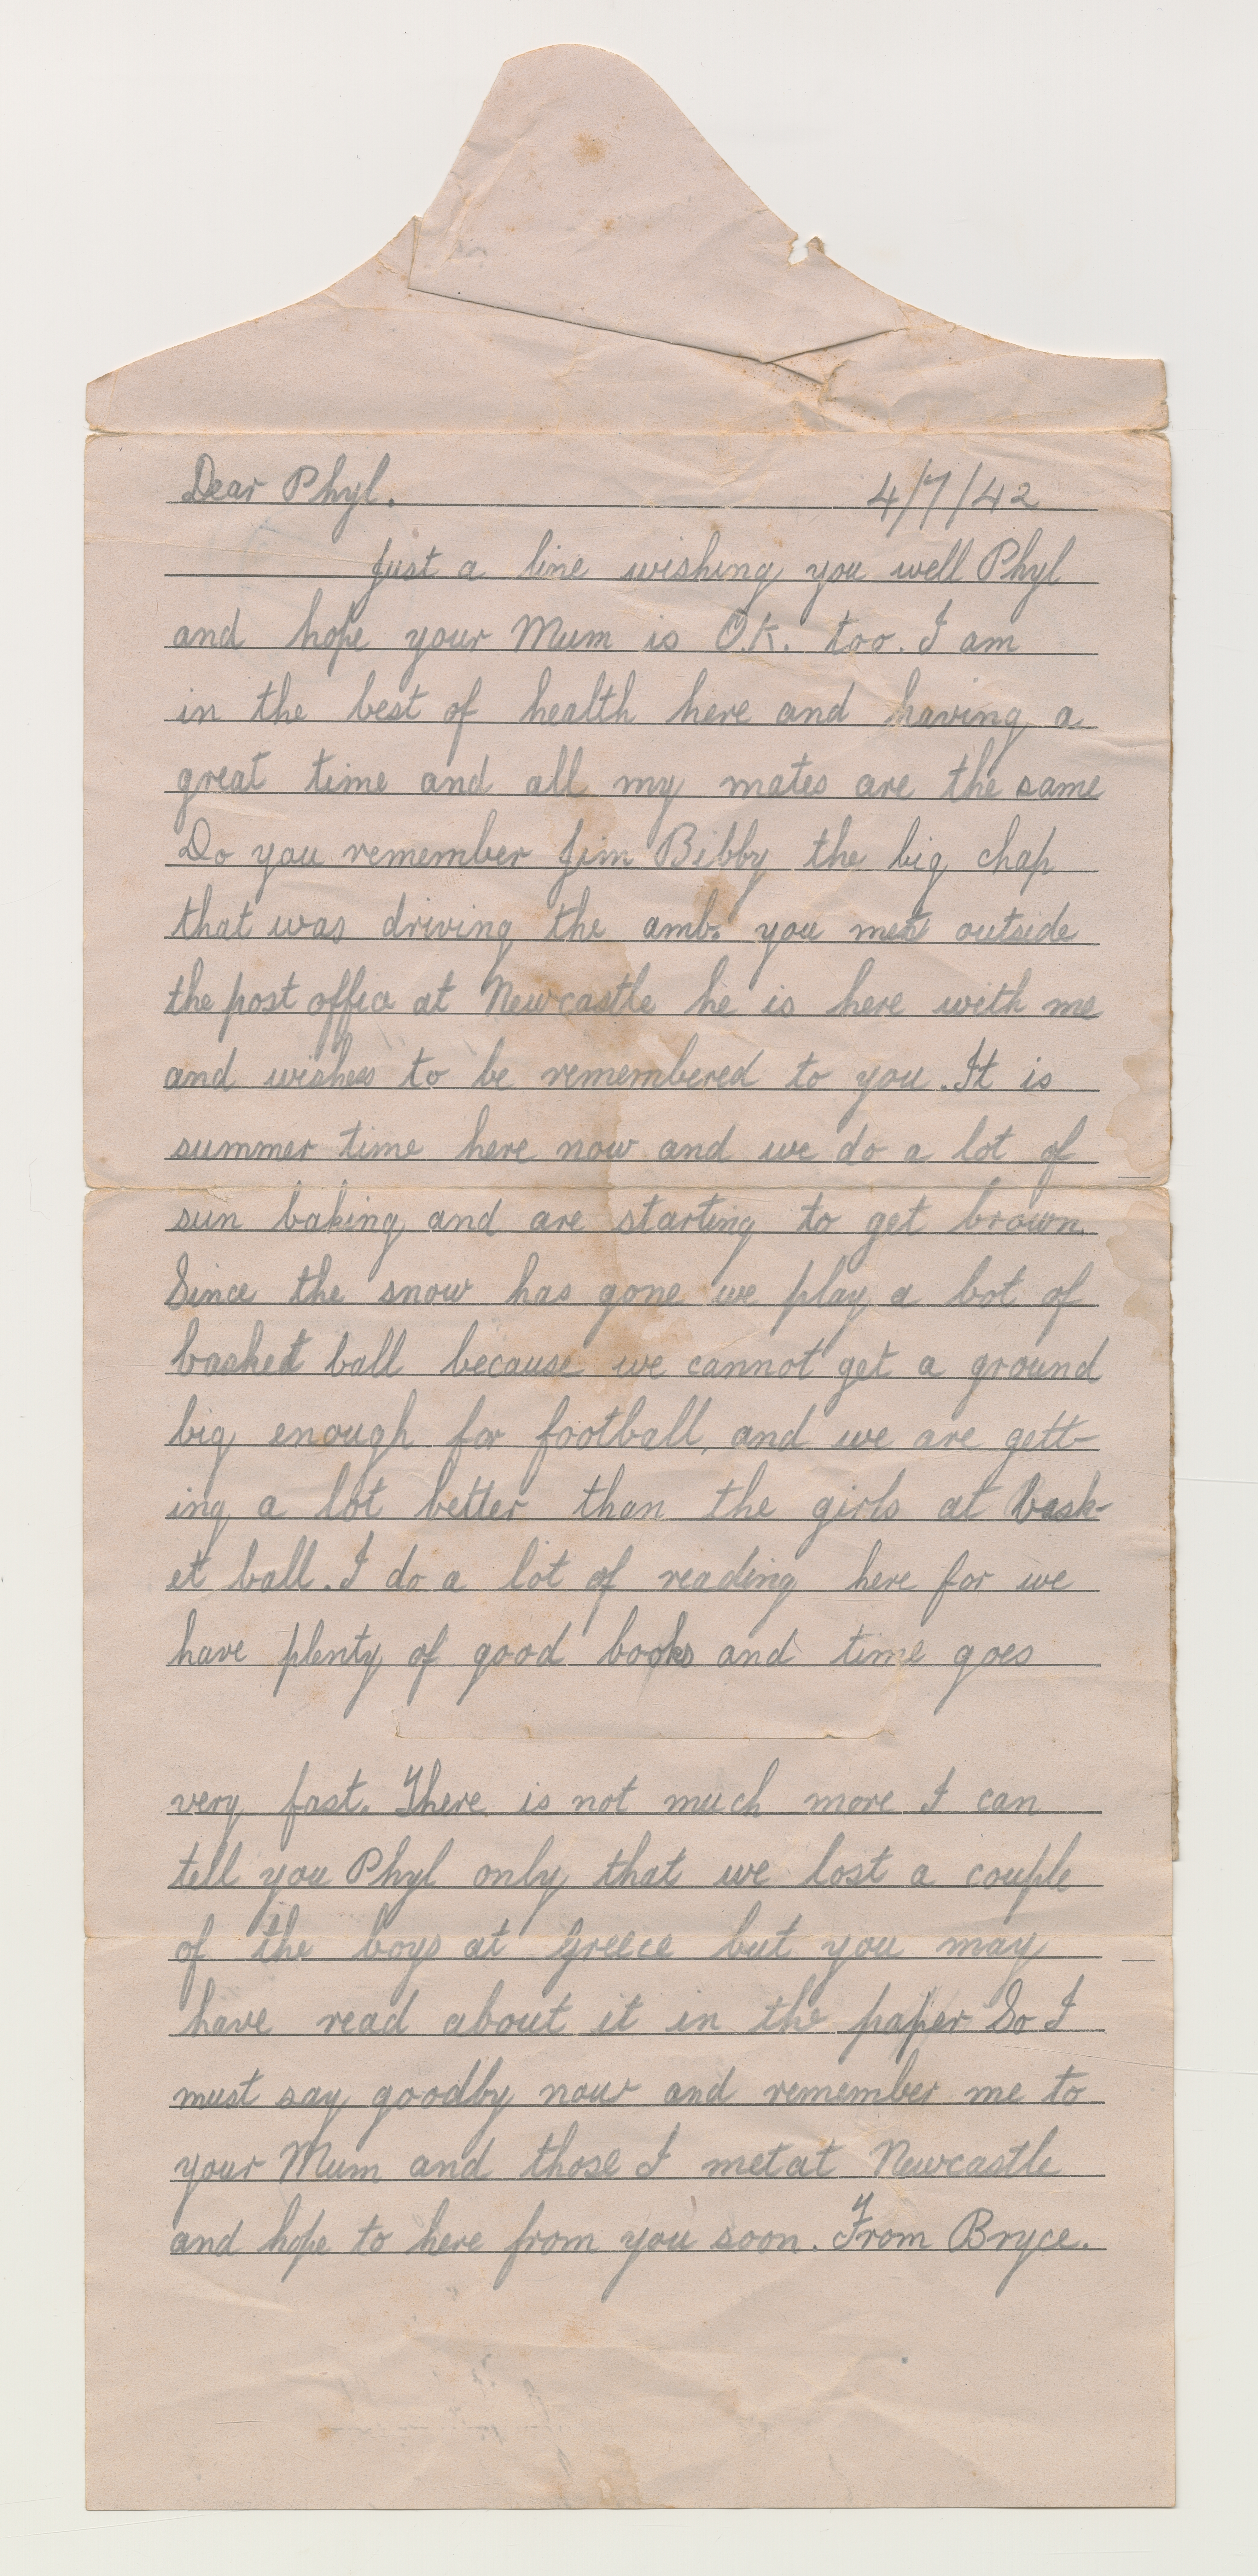 Dear Phyl. 4/7/42
Just a line wishing you well Phyl
and hope your Mum is O.K. too. I am
in the best of health here and having a
great time and all my mates are the same
Do you remember Jim Bibby the big chap
that was driving the amb. you met outside
the post office at Newcastle he is here with me
and wishes to be remembered to you. It is
summer time here now and we do a lot of
sun baking and are starting to get brown.
Since the snow has gone we play a lot of
basket ball because we cannot get a ground
big enough for football, and we are gett-
ing a lot better than the girls at bask-
et ball. I do a lot of reading here for we
have plenty of good books and time goes
very fast. There is not much more I can
tell you Phyl only that we lost a couple
of the boys at Greece but you may
have read about it in the paper So I
must say goodby now and remember me to
your Mum and those I met at Newcastle
and hope to here from you soon. From Bryce.